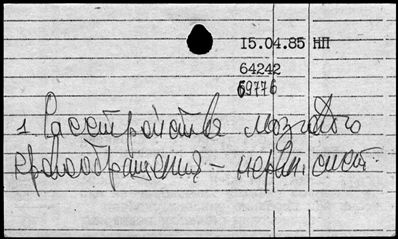 15.04.85 НП
64242
69776
1 Расстройства мозгового
кровообращения – нервн. сист.